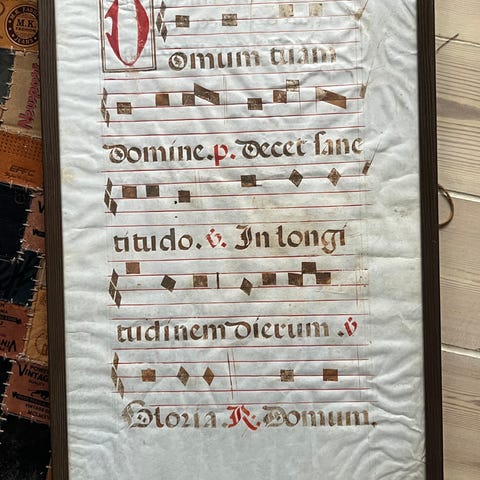 Domum tuam
Domine. p. Decet sanc
titudo. v. In longi
tudinem dierum .v
Gloria. R. Domum.
M.K.
VINTAGE